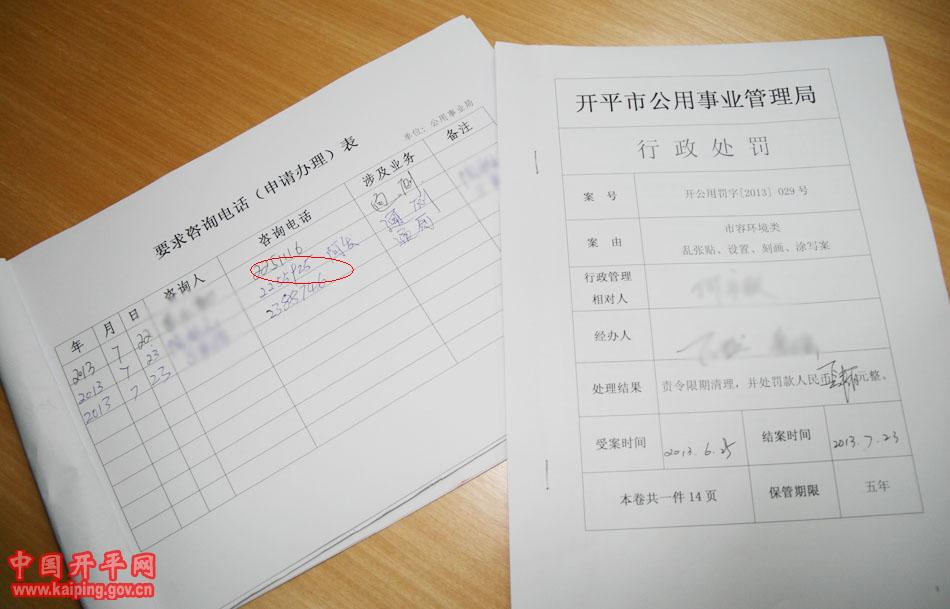 要求咨询电话（申请办理）表
单位：公用事业局
年 月 日 咨询人 咨询电话 涉及业务 备注
2013 7 22
2013 7 23
2013 7 23 2388746
开平市公用事业管理局
行政处罚
案号 开公用罚字[2013]029号
案由 市容环境类
乱张贴、设置、刻画、涂写案
行政管理
相对人
经办人
处理结果 责令限期清理，并处罚款人民币 元整。
受案时间 2013.6.25 结案时间 2013.7.23
本卷共一件14页 保管期限 五年
中国开平网
www.kaiping.gov.cn